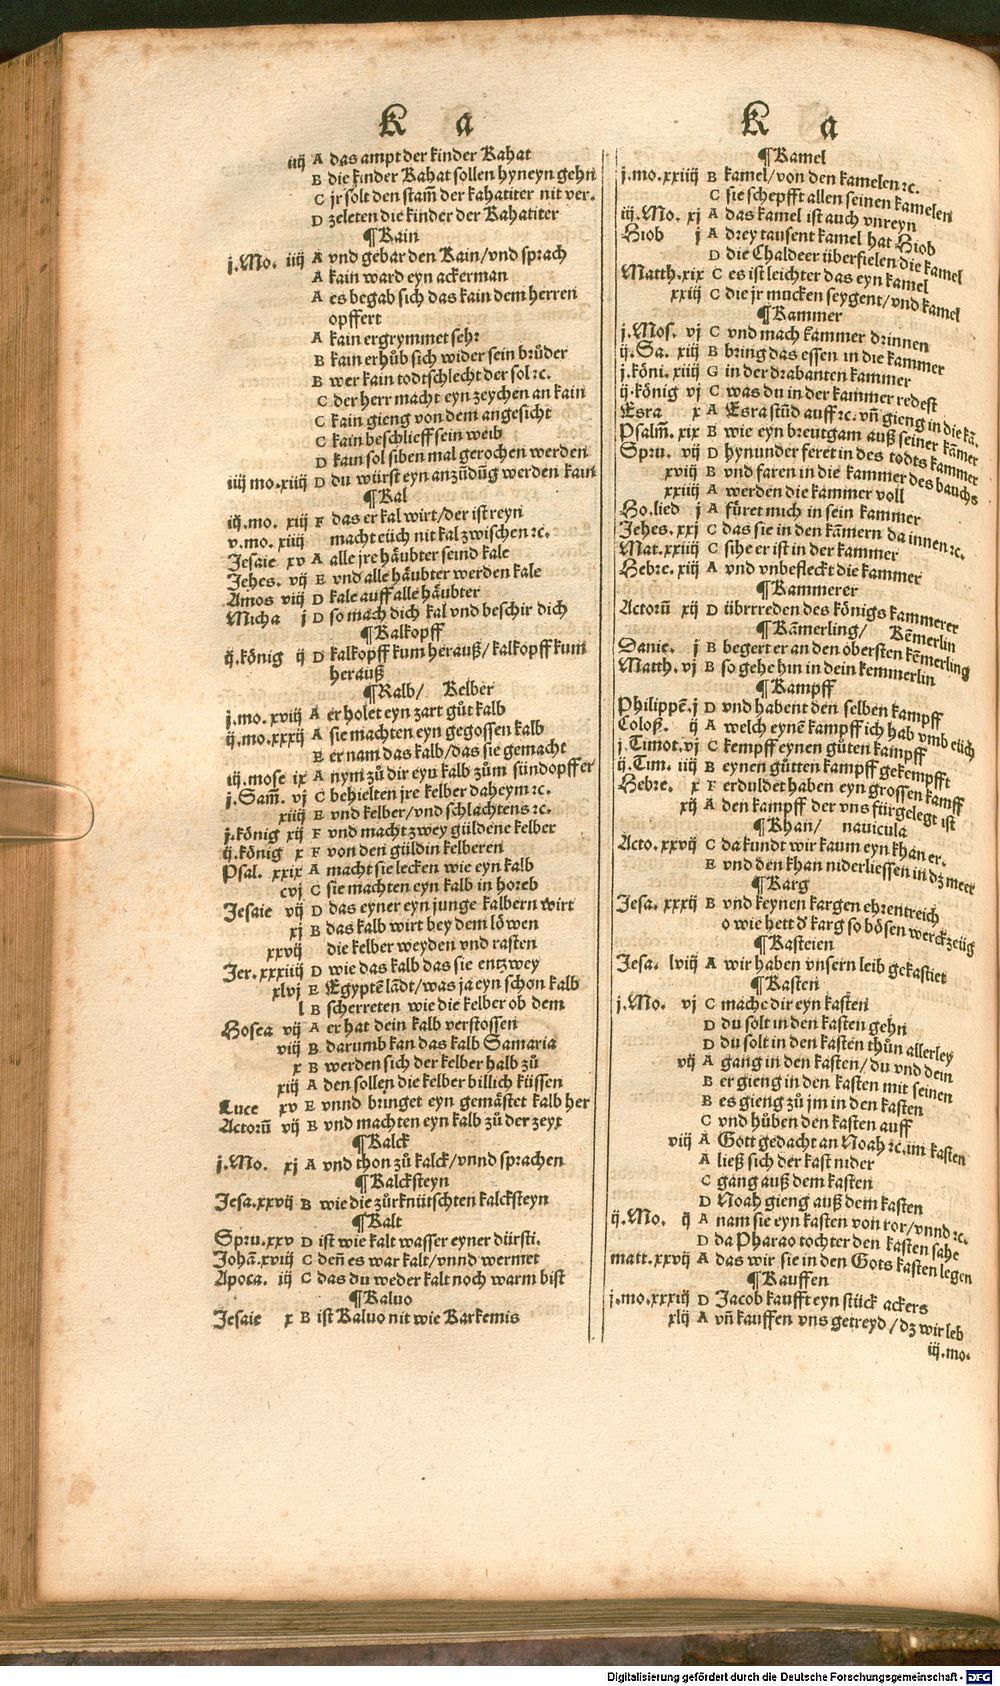 K a
iiij A das ampt der kinder Kahat
B die kinder Kahat sollen hyneyn gehn
C jr solt den stam̃ der kahatiter nit ver.
D zeleten die kinder der Kahatiter
¶Kain
j.Mo. iiij A vnd gebar den Kain/vnd sprach
A kain ward eyn ackerman
A es begab sich das kain dem herren
opffert
A kain ergrymmet sehr
B kain erhůb sich wider sein brůder
B wer kain todtschlecht der sol ꝛc.
C der herr macht eyn zeychen an kain
C kain gieng von dem angesicht
C kain beschlieff sein weib
D kain sol siben mal gerochen werden
iiij mo.xiiij D du würst eyn anzündũg werden kain
¶Kal
iij.mo. xiij F das er kal wirt/der ist reyn
v.mo. xiiij macht eüch nit kal zwischen ꝛc.
Jesaie xv A alle jre häubter seind kale
Jehes. vij E vnd alle häubter werden kale
Amos viij D kale auff alle häubter
Micha j D so mach dich kal vnd beschir dich
¶Kalkopff
ij.könig ij D kalkopff kum herauß/kalkopff kum
herauß
¶Kalb/ Kelber
j.mo.xviij A er holet eyn zart gůt kalb
ij.mo.xxxij A sie machten eyn gegossen kalb
E er nam das kalb/das sie gemacht
iij.mose ix A nym zů dir eyn kalb zům sündopffer
j.Sam̃. vj C behielten jre kelber daheym ꝛc.
xiiij E vnd kelber/vnd schlachtens ꝛc.
j.könig xij F vnd macht zwey güldene kelber
ij.könig x F von den güldin kelberen
Psal. xxix A macht sie lecken wie eyn kalb
cvj C sie machten eyn kalb in horeb
Jesaie vij D das eyner eyn junge kalbern wirt
xj B das kalb wirt bey dem löwen
xxvij die kelber weyden vnd rasten
Jer.xxxiiij D wie das kalb das sie entzwey
xlvj E Egyptẽ lãdt/was ja eyn schon kalb
l B scherreten wie die kelber ob dem
Hosea vij A er hat dein kalb verstossen
viij B darumb kan das kalb Samaria
x B werden sich der kelber halb zů
xiij A den sollen die kelber billich küssen
Luce xv E vnnd bringet eyn gemästet kalb her
Actorũ vij B vnd machten eyn kalb zů der zeyt
¶Kalck
j.Mo. xj A vnd thon zů kalck/vnnd sprachen
¶Kalcksteyn
Jesa.xxvij B wie die zůrknütschten kalcksteyn
¶Kalt
Spru.xxv D ist wie kalt wasser eyner dürsti.
Johã.xviij C deñ es war kalt/vnnd wermet
Apoca. iij C das du weder kalt noch warm bist
¶Kaluo
Jesaie x B ist Kaluo nit wie Karkemis
K a
¶Kamel
j.mo.xxiiij B kamel/von den kamelen ꝛc.
C sie schepfft allen seinen kamelen
iij.Mo. xj A das kamel ist auch vnreyn
Hiob j A drey tausent kamel hat Hiob
D die Chaldeer überfielen die kamel
Matth.xix C es ist leichter das eyn kamel
xxiij C die jr mucken seygent/vnd kamel
¶Kammer
j.Mos. vj C vnd mach kammer drinnen
ij.Sa. xiij B bring das essen in die kammer
j.köni. xiiij G in der drabanten kammer
ij.könig vj C was du in der kammer redest
Esra x A Esra stůd auff ꝛc. vñ gieng in die kã.
Psalm̃. xix B wie eyn breutgam auß seiner kãmer
Spru. vij D hynunder feret in des todts kammer
xviij B vnd faren in die kammer des bauchs
xxiiij A werden die kammer voll
Ho.lied j A füret mich in sein kammer
Jehes.xxj C das sie in den kãmern da innen ꝛc.
Mat.xxiiij C sihe er ist in der kammer
Hebre. xiij A vnd vnbefleckt die kammer
¶Kammerer
Actorũ xij D übrrreden des königs kammerer
¶Kãmerling/ Kẽmerlin
Danie. j B begert er an den öbersten kẽmerling
Matth. vj B so gehe hin in dein kemmerlin
¶Kampff
Philippẽ.j D vnd habent den selben kampff
Coloß. ij A welch eynẽ kampff ich hab vmb eüch
j.Timot.vj C kempff eynen güten kampff
ij.Tim. iiij B eynen gůtten kampff gekempfft
Hebre. x F erduldet haben eyn grossen kampff
xij A den kampff der vns fürgelegt ist
¶Khan/ nauicula
Acto.xxvij C da kundt wir kaum eyn khan er.
E vnd den khan niderliessen in dz meer
¶Karg
Jesa.xxxij B vnd keynen kargen ehrentreich
o wie hett ď karg so bösen werckzeüg
¶Kasteien
Jesa. lviij A wir haben vnsern leib gekastiet
¶Kasten
j.Mo. vj C mache dir eyn kasten
D du solt in den kasten gehn
D du solt in den kasten thůn allerley
vij A gang in den kasten/du vnd dein
B er gieng in den kasten mit seinen
B es gieng zů jm in den kasten
C vnd hüben den kasten auff
viij A Gott gedacht an Noah ꝛc.im kasten
A ließ sich der kast nider
C gang auß dem kasten
D Noah gieng auß dem kasten
ij.Mo. ij A nam sie eyn kasten von ror/vnnd ꝛc.
D da Pharao tochter den kasten sahe
matt.xxvij A das wir sie in den Gots kasten legen
¶Kauffen
j.mo.xxxiij D Jacob kaufft eyn stück ackers
xlij A vñ kauffen vns getreyd/dz wir leb
iij.mo.
Digitalisierung gefördert durch die Deutsche Forschungsgemeinschaft - DFG